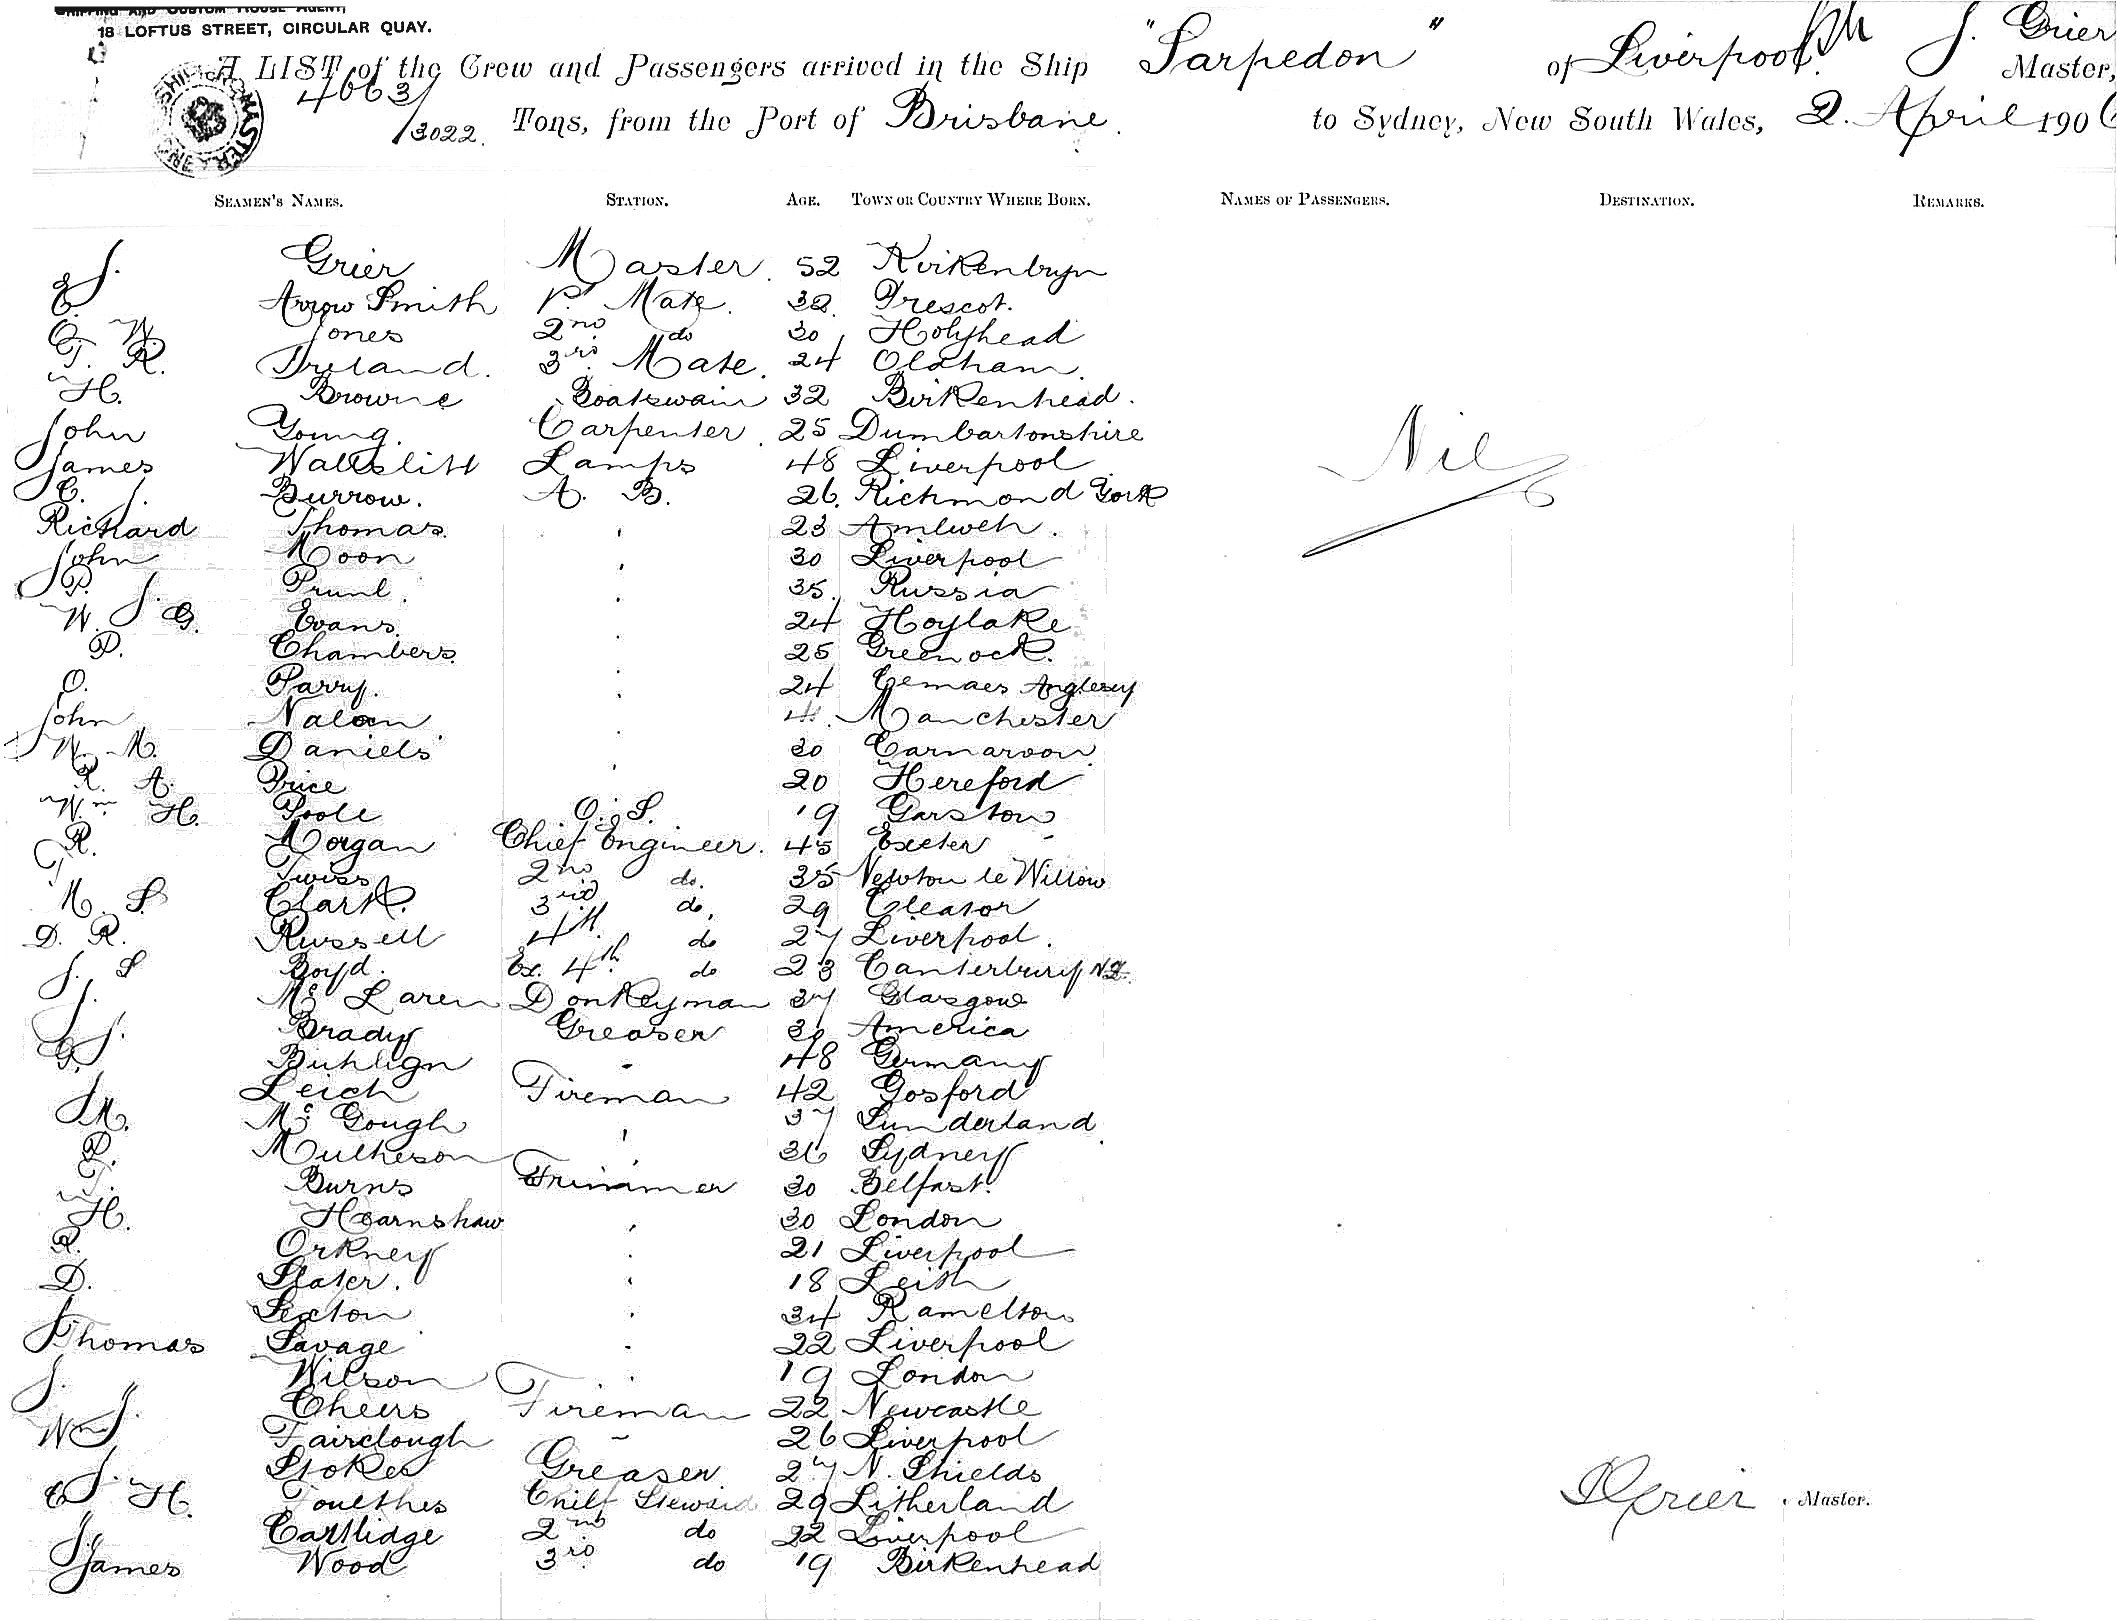 SHIPPING AND CUSTOM HOUSE AGENT,
18 LOFTUS STREET, CIRCULAR QUAY.
A LIST of the Crew and Passengers arrived in the Ship "Sarpedon" of Liverpool J. Grier Master,
4663/3022. Tons, from the Port of Brisbane. to Sydney, New South Wales, 2. April 190
SEAMEN'S NAMES. STATION. AGE. TOWN OR COUNTRY WHERE BORN. NAMES OF PASSENGERS. DESTINATION. REMARKS.
J. Grier Master. 52
E. Arrow Smith Mate. Prescot.
O. W. Jones 2nd do 30 Holyhead
T. R. Ireland. 3rd Mate. 24 Oldham.
H. Browne Boatswain 32 Birkenhead.
John Young. Carpenter. 25 Dumbartonshire
James Lamps 48 Liverpool
C. J. Burrow. A. B. 26. Richmond York
Richard Thomas. 23 Amlwch.
John Moon 30 Liverpool
P. 35. Russia
W. J. G. Evans. 24 Hoylake
P. Chambers. 25 Greenock.
O. Parry. 24 Cemaes Anglesey
John Manchester
W. M. Daniels 30 Carnarvon.
R. A. Price 20 Hereford
Wm H. Poole O. S. 19 Garston
R. Morgan Chief Engineer. 45 Exeter
T. Twiss 2nd do. 35 Newton le Willow
M. S. Clark. 3rd do. 29 Cleator
D. R. Russell 4th. do 27 Liverpool.
J. S Boyd. Ex. 4th do 23 Canterbury N.Z.
J. Mc Laren Donkeyman 37 Glasgow
J. Brady Greaser America
G. 48 Germany
Leich Fireman 42 Gosford
M. Mc Gough 37 Sunderland
P. 36 Sydney
T. Burns Trimmer 30 Belfast.
H. Hearnshaw 30 London
R. Orkney 21 Liverpool
D. Slater. 18 Leith
J. Sexton 34 Ramelton
Thomas Savage 22 Liverpool
J. Wilson 19 London
J. Cheers Fireman 22 Newcastle
Wm Fairclough 26 Liverpool
J. Stokes Greaser 27 N. Shields
E H. Chief Steward 29 Litherland
J. Cartlidge 2nd do 22 Liverpool
James Wood 3rd do 19 Birkenhead
Nil
J Grier Master.